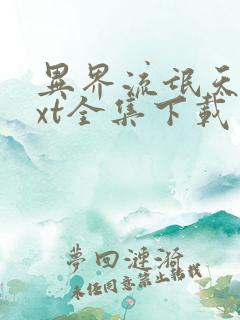 異界流氓天
xt全集下載
夢回漣漪
未經同意禁止轉載